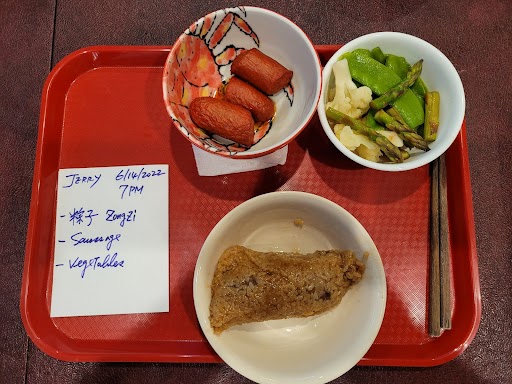 JERRY 6/14/2022
7PM
- 粽子 Zongzi
- Sausage
- Vegetables